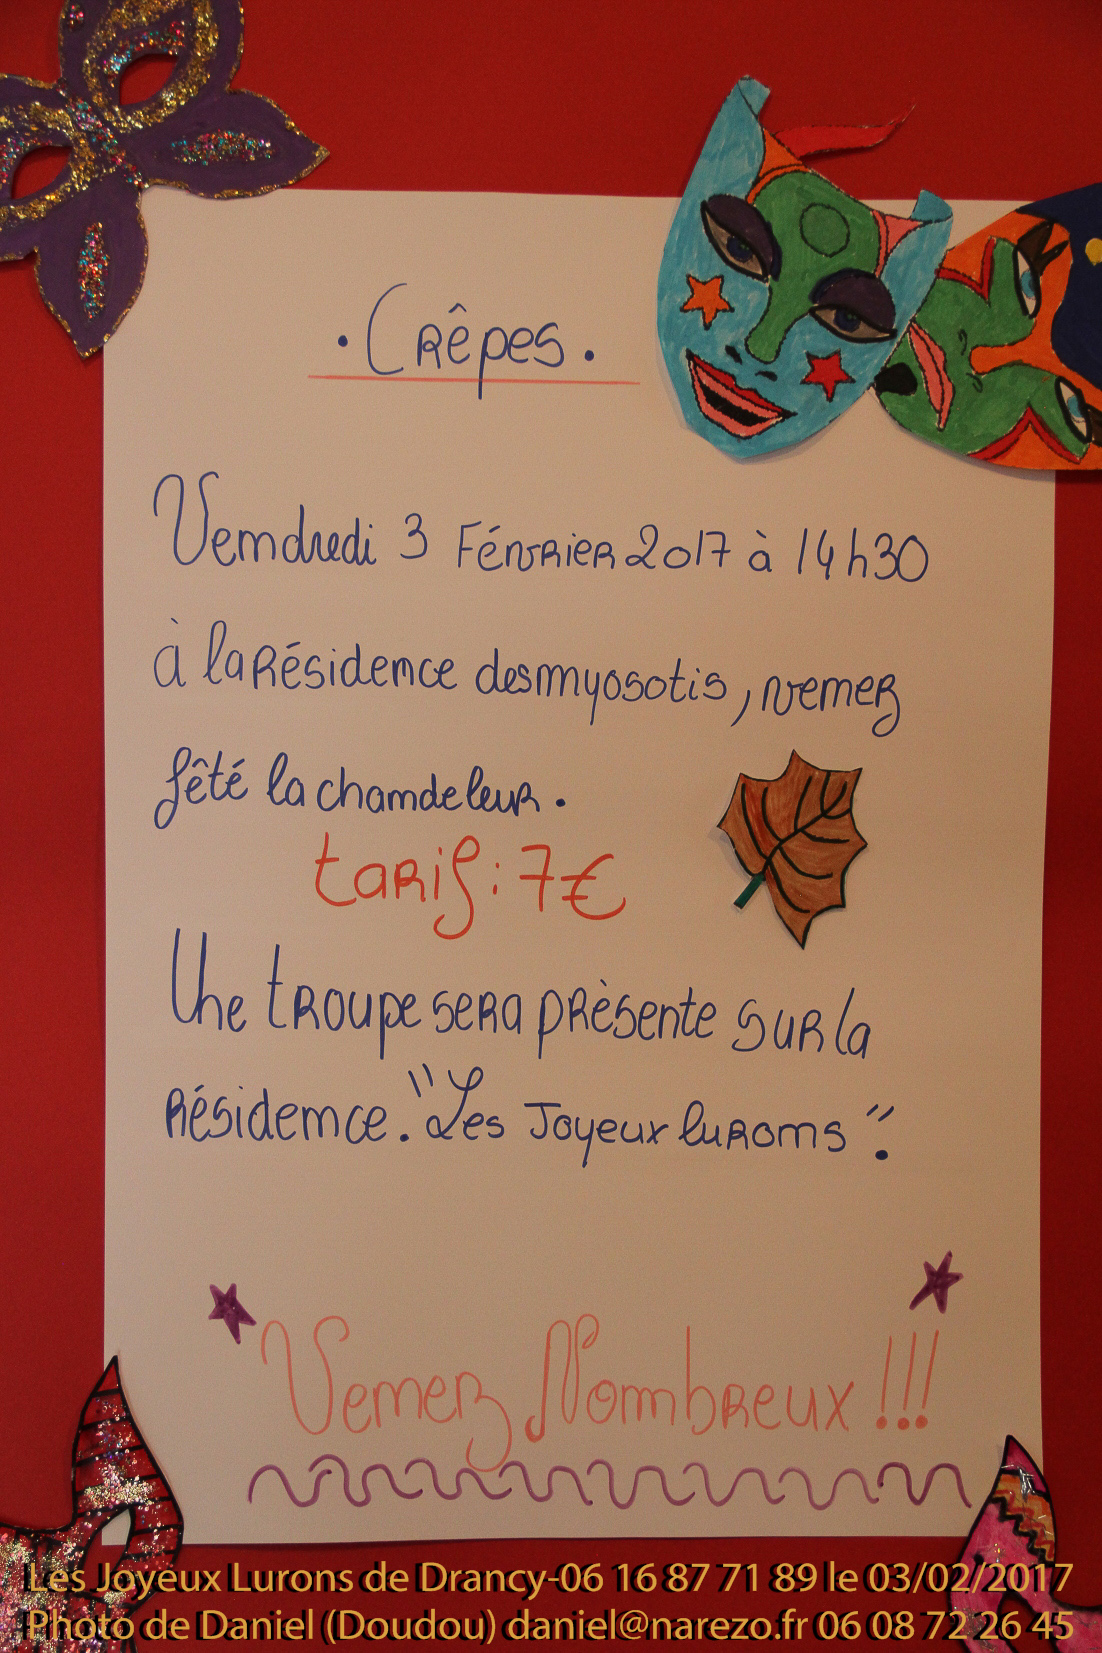 . Crêpes .
Vendredi 3 Février 2017 à 14h30
à la Résidence des myosotis, venez
fêté la chandeleur.
tarif : 7€
Une troupe sera prèsente sur la
Résidence. "Les Joyeux lurons".
Venez Nombreux !!!
Les Joyeux Lurons de Drancy-06 16 87 71 89 le 03/02/2017
Photo de Daniel (Doudou) daniel@narezo.fr 06 08 72 26 45